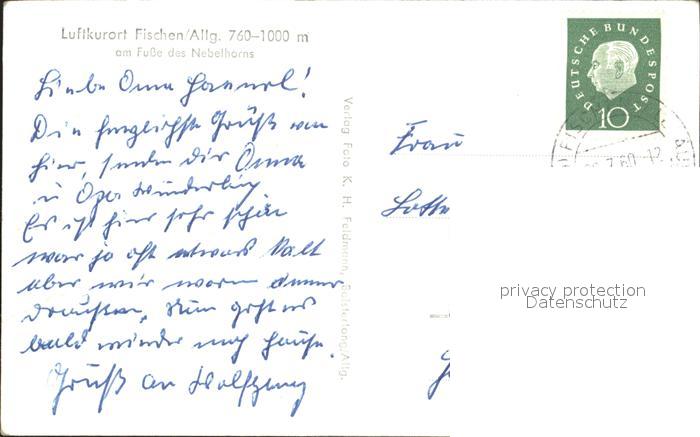 Luftkurort Fischen/Allg. 760–1000 m
am Fuße des Nebelhorns
Liebe Oma Hannerl!
Die herzlichste Grüße von
hier, senden dir Omma
u Opa Wunderling
Es ist hier sehr schön
war ja oft etwas kalt
aber wir waren immer
draußen, Nun geht es
bald wieder nach Hause.
Gruß an Wolfgang
Verlag Foto K. H. Feldmann, Bolsterlang/Allg.
DEUTSCHE BUNDESPOST
10
7.60-12
Frau
Lotte
privacy protection
Datenschutz